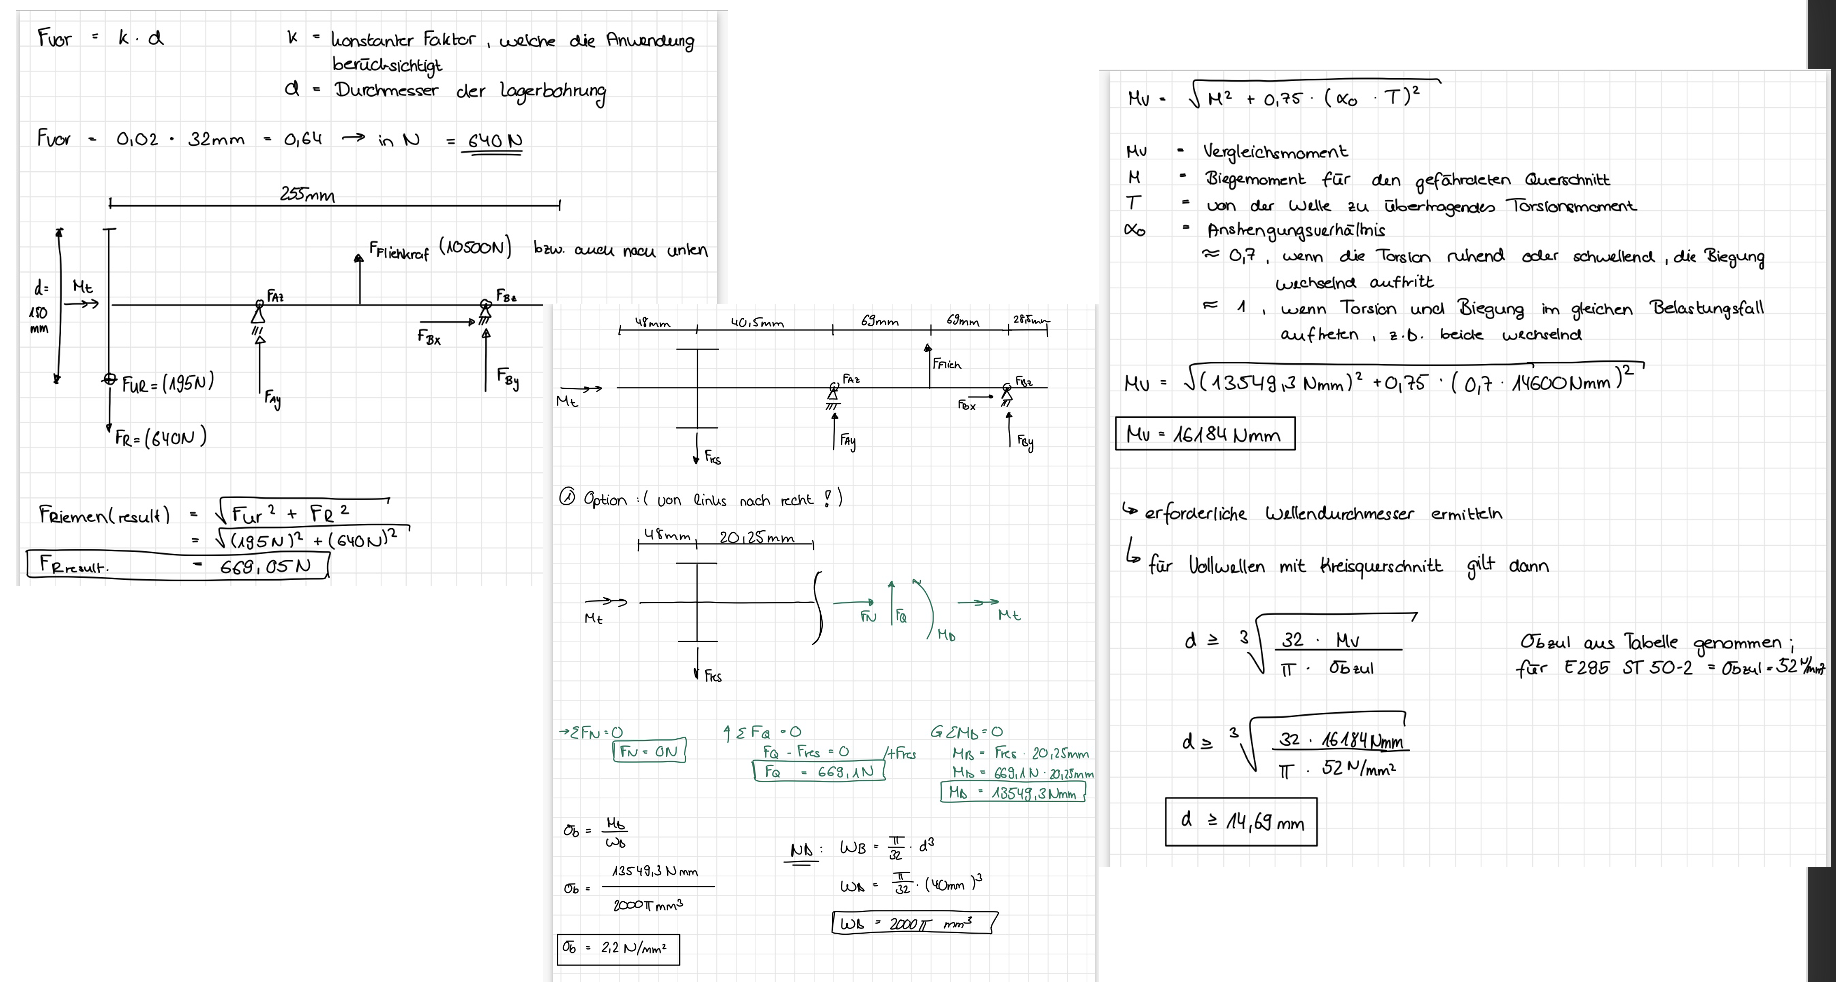 Fvor = k · d
k = konstanter Faktor, welche die Anwendung
berücksichtigt
d = Durchmesser der Lagerbohrung
Fvor = 0,02 · 32mm = 0,64 → in N = 640N
255mm
FFliehkraf (10500N) bzw. auch nach unten
d=
150
mm
Mt
FAz
FBz
FBx
FUR = (195N)
FAy
FBy
FR = (640N)
FRiemen(result) = √Fur² + FR²
= √(195N)² + (640N)²
FRresult. = 669,05N
48mm
40,5mm
69mm
69mm
28,5mm
FFlieh
FAz
FBz
Mt
FBx
FAy
FBy
Fres
① Option : ( von links nach recht ! )
48mm
20,25mm
Mt
FN
FQ
Mb
Mt
Fres
→ΣFN=0
FN = 0N
↑ΣFQ = 0
FQ - Fres = 0 /+Fres
FQ = 669,1N
GΣMb=0
MB = Fres · 20,25mm
Mb = 669,1N · 20,25mm
Mb = 13549,3Nmm
σb = Mb / Wb
σb = 13549,3Nmm / 2000π mm³
σb = 2,2 N/mm²
Nb : WB = π/32 · d³
Wb = π/32 · (40mm)³
Wb = 2000π mm³
Mv = √M² + 0,75 · (α0 · T)²
Mv = Vergleichsmoment
M = Biegemoment für den gefährdeten Querschnitt
T = von der Welle zu übertragendes Torsionsmoment
α0 = Anstrengungsverhältnis
≈ 0,7, wenn die Torsion ruhend oder schwellend, die Biegung
wechselnd auftritt
≈ 1, wenn Torsion und Biegung im gleichen Belastungsfall
auftreten, z.b. beide wechselnd
Mv = √(13549,3Nmm)² + 0,75 · (0,7 · 14600Nmm)²
Mv = 16184 Nmm
↳ erforderliche Wellendurchmesser ermitteln
↳ für Vollwellen mit Kreisquerschnitt gilt dann
d ≥ ³√ 32 · Mv / π · σbzul
σbzul aus Tabelle genommen;
für E295 ST 50-2 = σbzul = 52 N/mm²
d ≥ ³√ 32 · 16184Nmm / π · 52N/mm²
d ≥ 14,69 mm